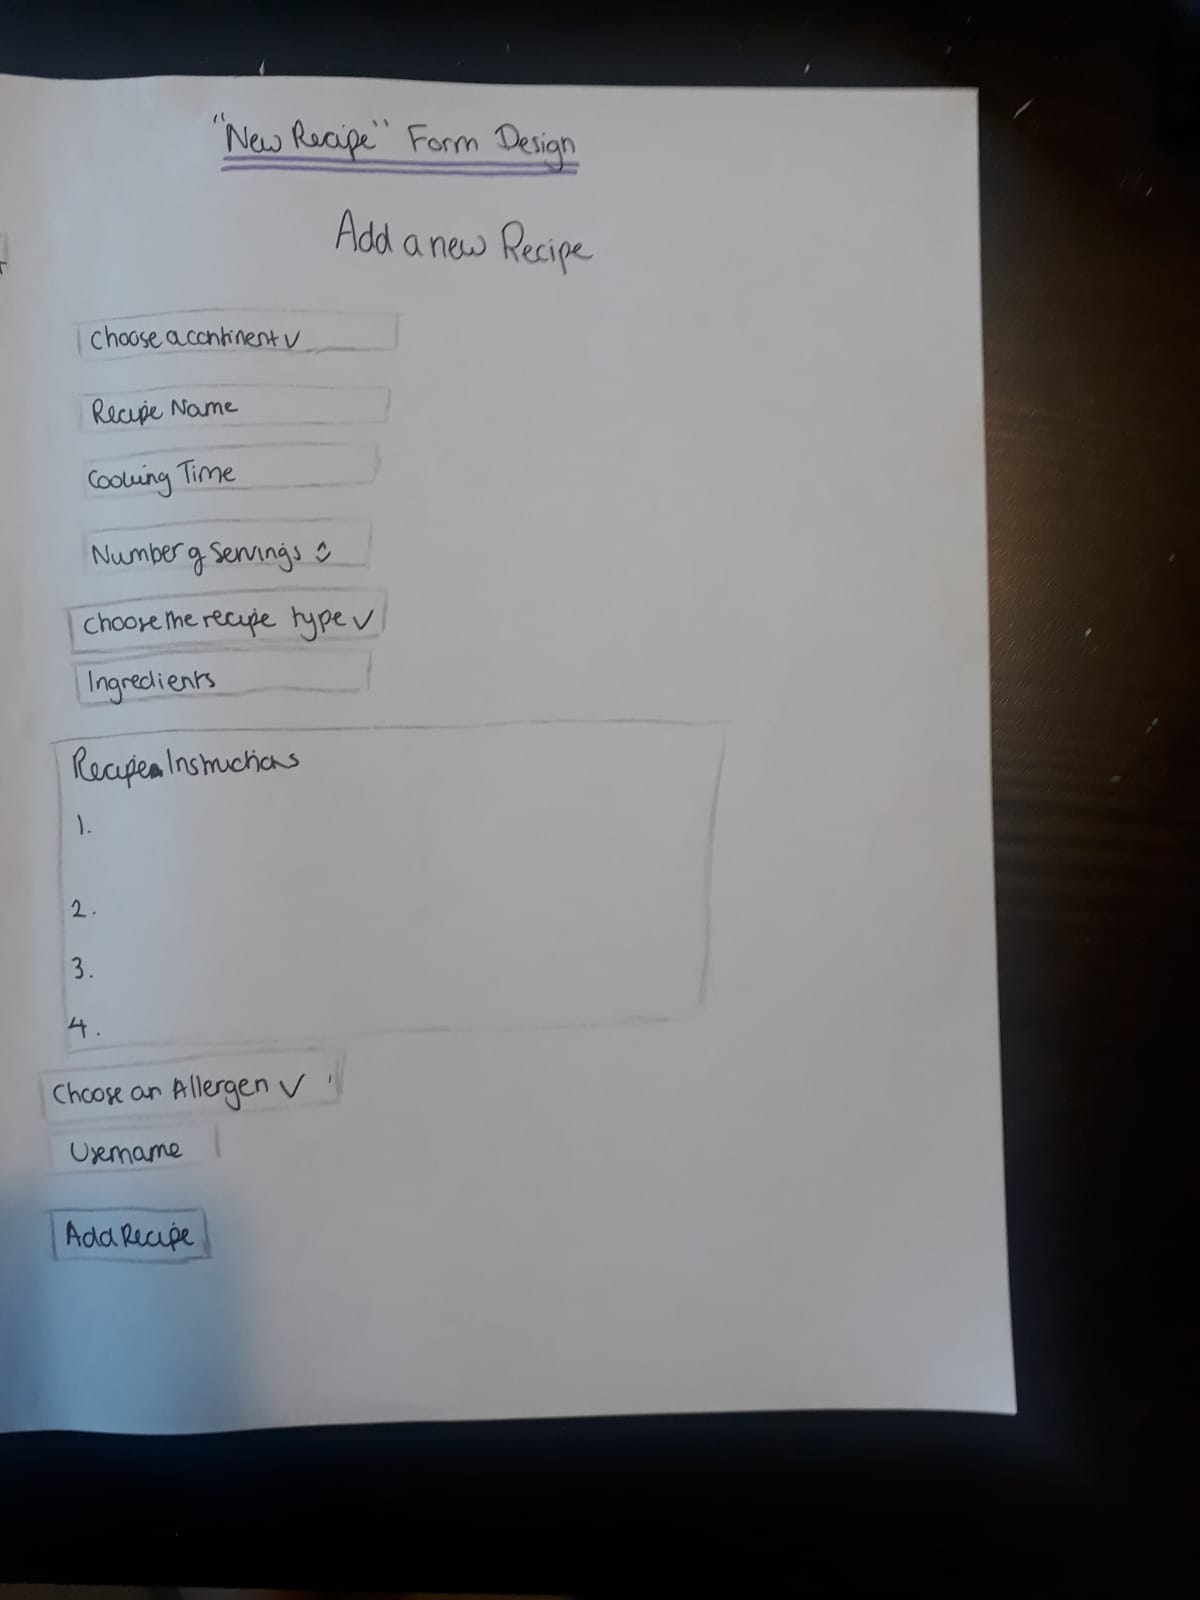 "New Recipe" Form Design
Add a new Recipe
Choose a continent
Recipe Name
Cooking Time
Number of Servings
Choose the recipe type
Ingredients
Recipe Instructions
1.
2.
3.
4.
Choose an Allergen
Username
Add Recipe